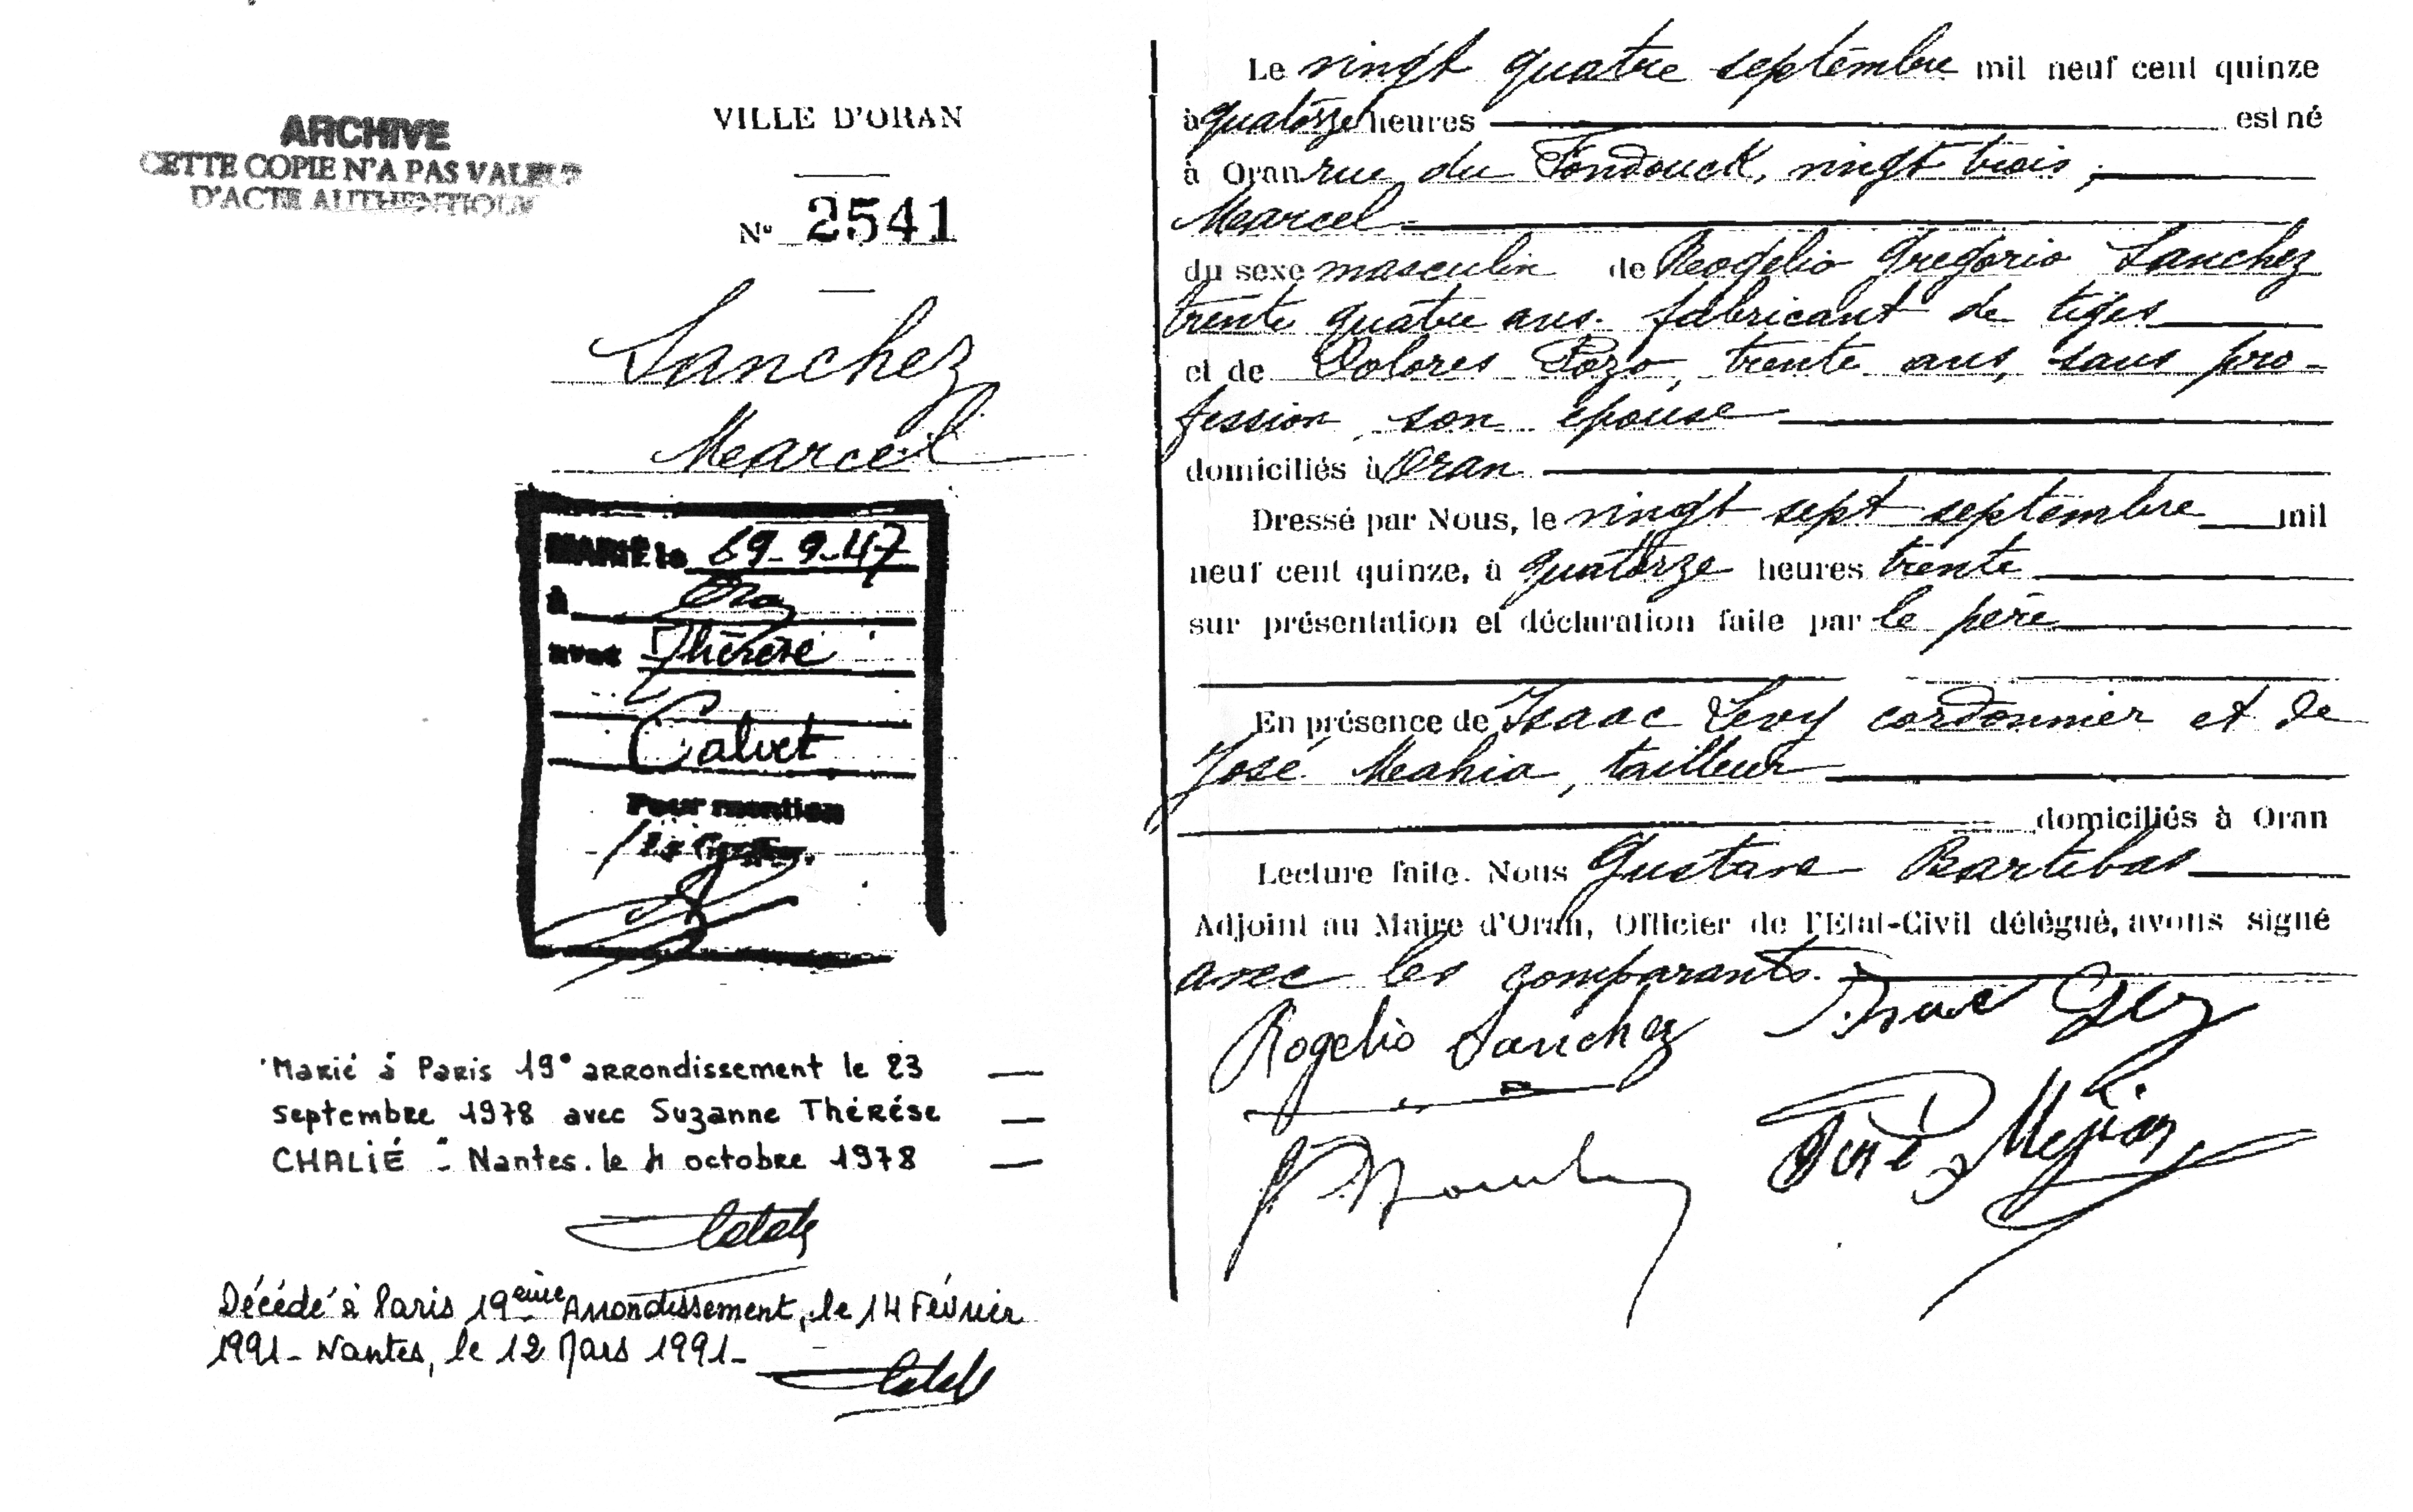 ARCHIVE
CETTE COPIE N'A PAS VALEUR
D'ACTE AUTHENTIQUE
VILLE D'ORAN
N° 2541
Sanchez
Marcel
MARIÉ le 9-47
à Oran
avec Thérèse
Calvet
Pour mention
Marié à Paris 19° arrondissement le 23
septembre 1978 avec Suzanne Thérèse
CHALIÉ - Nantes. le 4 octobre 1978
Décédé à Paris 19ème Arrondissement, le 14 Février
1991 - Nantes, le 12 Mars 1991 -
Le vingt quatre septembre mil neuf cent quinze
à quatorze heures est né
à Oran rue du Fondouck, vingt trois,
Marcel
du sexe masculin de Rogelio Gregorio Sanchez
trente quatre ans. fabricant de tiges
et de Dolores Pozo, trente ans, sans pro-
fession, son épouse
domiciliés à Oran
Dressé par Nous, le vingt sept septembre mil
neuf cent quinze, à quatorze heures trente
sur présentation et déclaration faite par le père
En présence de Isaac Levy cordonnier et de
José Mahia, tailleur
domiciliés à Oran
Lecture faite. Nous Gustave Bartibas
Adjoint au Maire d'Oran, Officier de l'Etat-Civil délégué, avons signé
avec les comparants.
Rogelio Sanchez Isaac